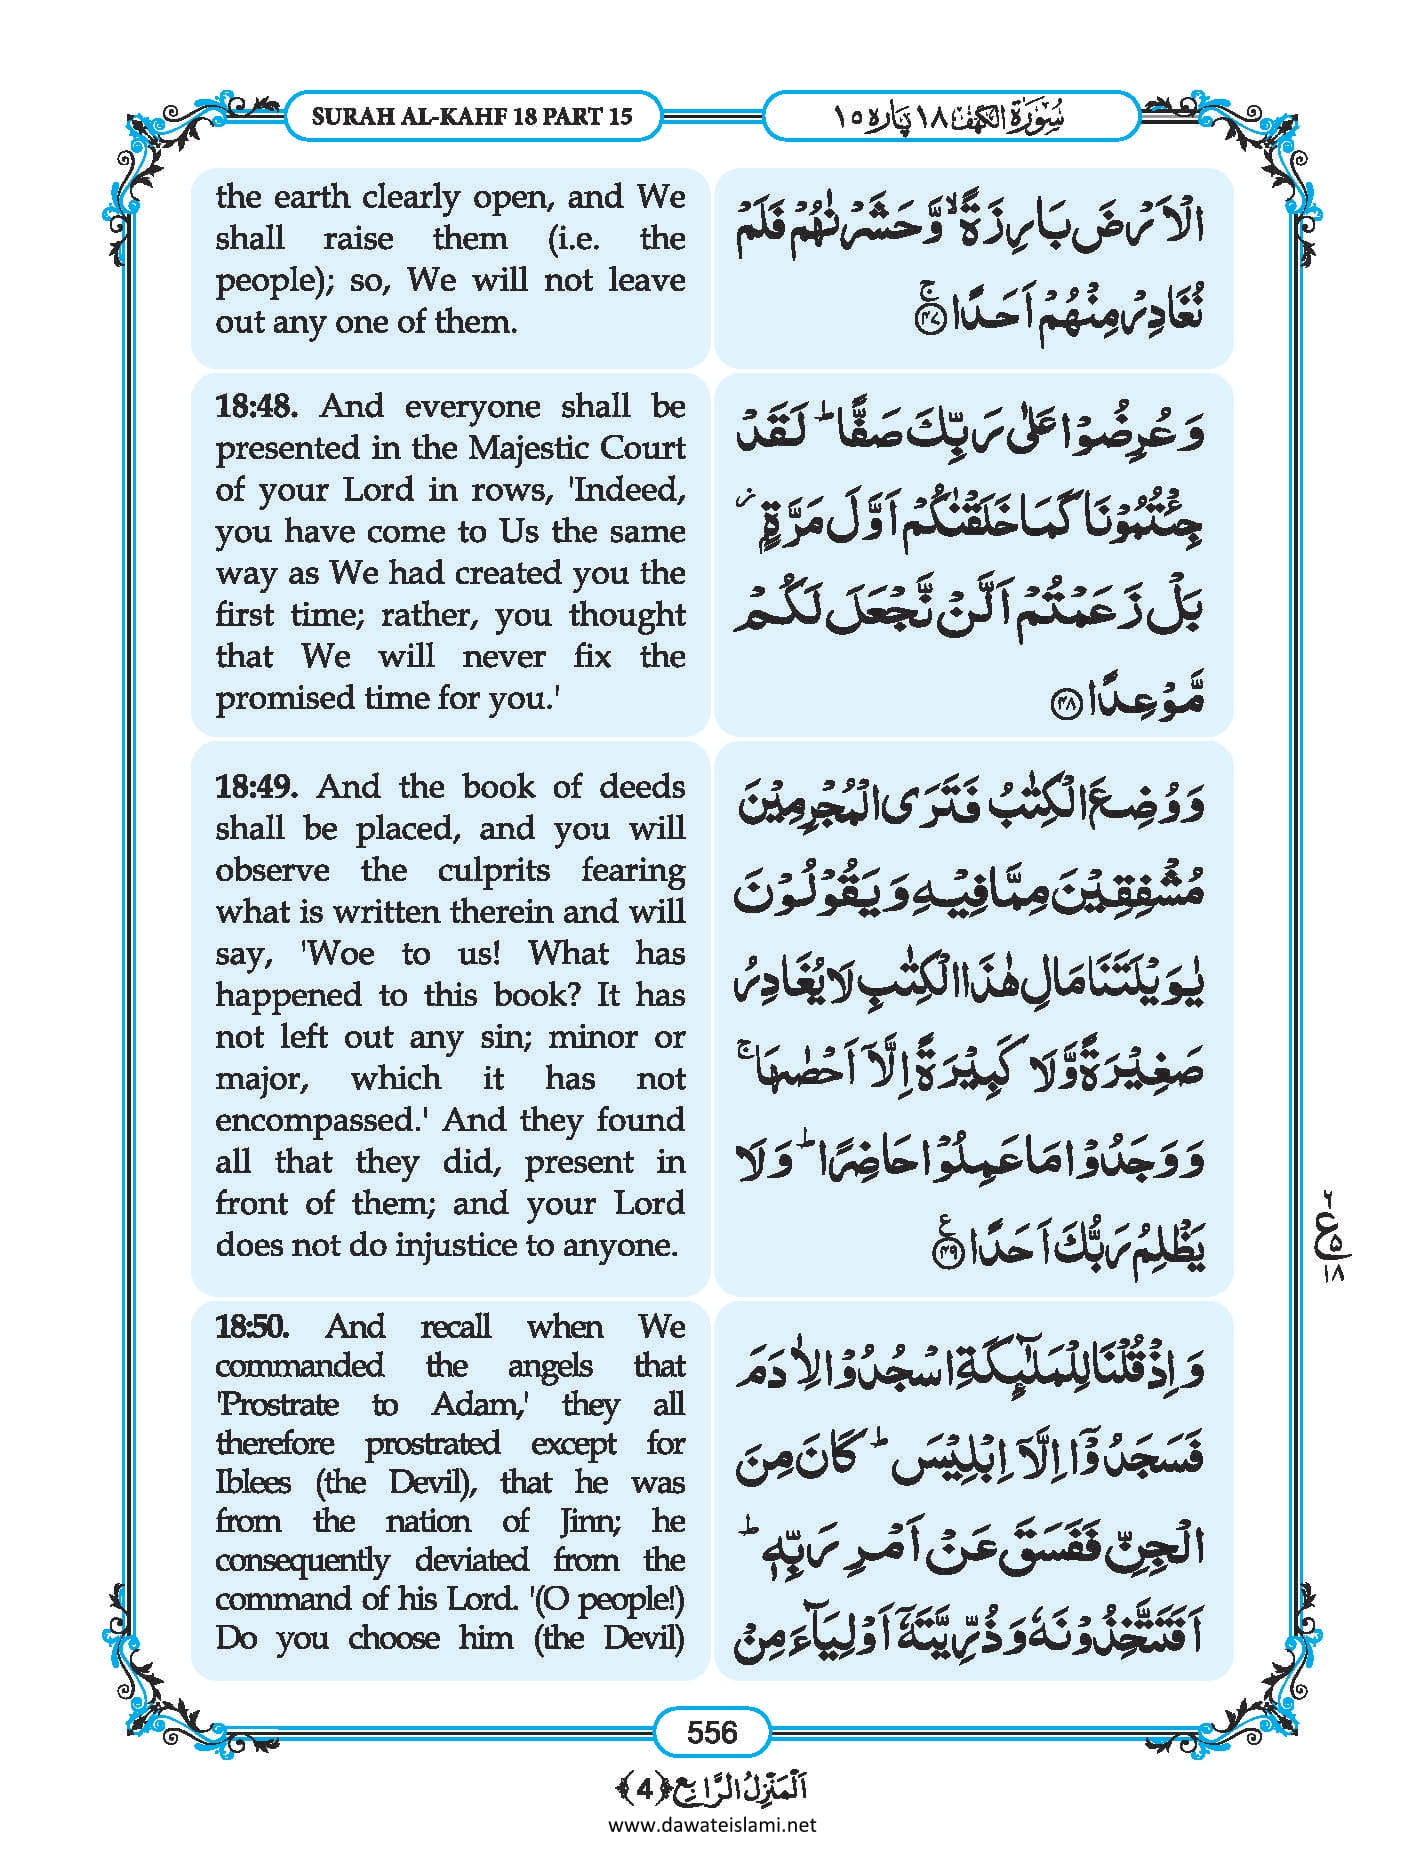 SURAH AL-KAHF 18 PART 15
سُوْرَۃُ الْکَہْف ۱۸ پَارہ ۱۵
the earth clearly open, and We
shall raise them (i.e. the
people); so, We will not leave
out any one of them.
الْاَرْضَ بَارِزَةً ۙ وَّ حَشَرْنٰهُمْ فَلَمْ
نُغَادِرْ مِنْهُمْ اَحَدًا ۚ﴿۴۷﴾
18:48. And everyone shall be
presented in the Majestic Court
of your Lord in rows, 'Indeed,
you have come to Us the same
way as We had created you the
first time; rather, you thought
that We will never fix the
promised time for you.'
وَ عُرِضُوْا عَلٰی رَبِّكَ صَفًّا ؕ لَقَدْ
جِئْتُمُوْنَا كَمَا خَلَقْنٰكُمْ اَوَّلَ مَرَّةٍۭ ؗ
بَلْ زَعَمْتُمْ اَلَّنْ نَّجْعَلَ لَكُمْ
مَّوْعِدًا ﴿۴۸﴾
18:49. And the book of deeds
shall be placed, and you will
observe the culprits fearing
what is written therein and will
say, 'Woe to us! What has
happened to this book? It has
not left out any sin; minor or
major, which it has not
encompassed.' And they found
all that they did, present in
front of them; and your Lord
does not do injustice to anyone.
وَ وُضِعَ الْكِتٰبُ فَتَرَی الْمُجْرِمِیْنَ
مُشْفِقِیْنَ مِمَّا فِیْهِ وَ یَقُوْلُوْنَ
یٰوَیْلَتَنَا مَالِ هٰذَا الْكِتٰبِ لَا یُغَادِرُ
صَغِیْرَةً وَّ لَا كَبِیْرَةً اِلَّاۤ اَحْصٰىهَا ۚ
وَ وَجَدُوْا مَا عَمِلُوْا حَاضِرًا ؕ وَ لَا
یَظْلِمُ رَبُّكَ اَحَدًا ﴿۴۹﴾ ع
۶
ع
۵
۱۸
18:50. And recall when We
commanded the angels that
'Prostrate to Adam,' they all
therefore prostrated except for
Iblees (the Devil), that he was
from the nation of Jinn; he
consequently deviated from the
command of his Lord. '(O people!)
Do you choose him (the Devil)
وَ اِذْ قُلْنَا لِلْمَلٰٓىِٕكَةِ اسْجُدُوْا لِاٰدَمَ
فَسَجَدُوْۤا اِلَّاۤ اِبْلِیْسَ ؕ كَانَ مِنَ
الْجِنِّ فَفَسَقَ عَنْ اَمْرِ رَبِّهٖ ؕ
اَفَتَتَّخِذُوْنَهٗ وَ ذُرِّیَّتَهٗۤ اَوْلِیَآءَ مِنْ
556
اَلْمَنْزِلُ الرَّابِع ﴿4﴾
www.dawateislami.net